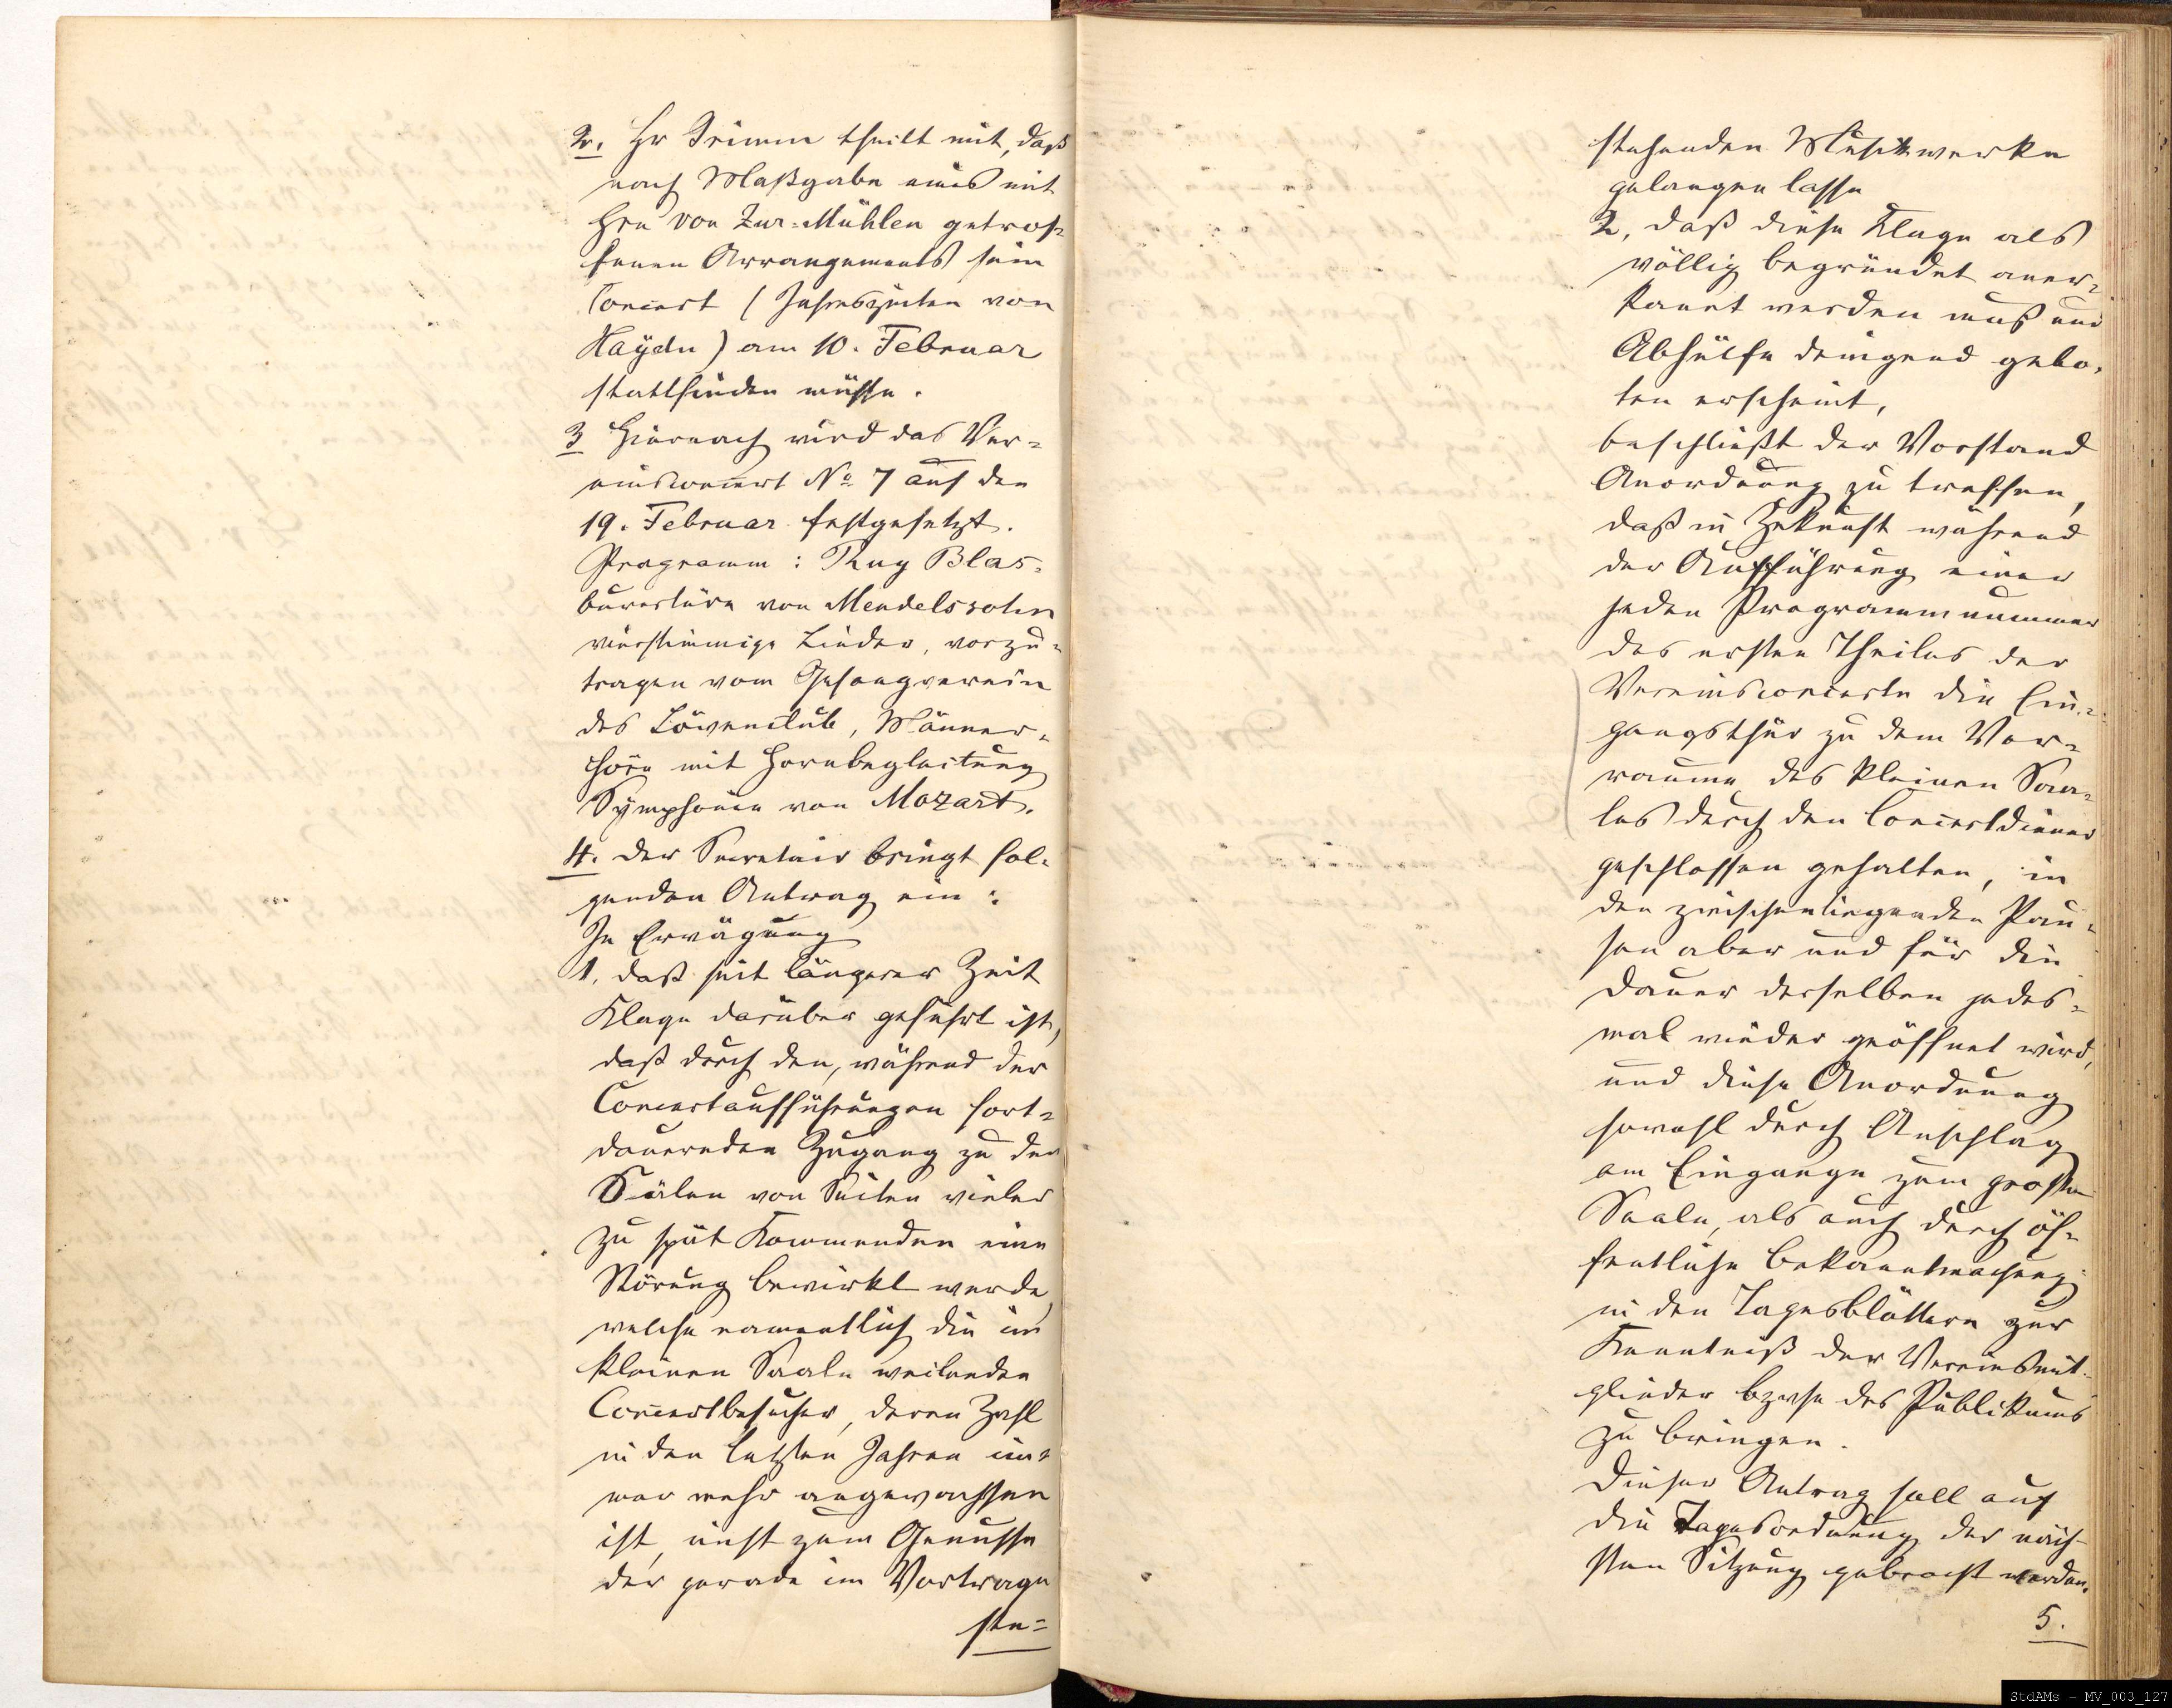 2. Hr Grimm theilt mit, daß
nach Maßgabe eines mit
Hrn von Zur-Mühlen getrof-
fenen Arrangements sein
Concert (Jahreszeiten von
Haydn) am 10. Februar
stattfinden müsse.
3 Hiernach wird das Ver-
einsconcert No 7 auf den
19. Februar festgesetzt.
Programm: Ruy Blas-
Ouverture von Mendelssohn
vierstimmige Lieder, vorzu-
tragen vom Gesangverein
des Löwenclub, Männer-
chöre mit Hornbegleitung
Symphonie von Mozart.
4. Der Secretair bringt fol-
genden Antrag ein:
In Erwägung
1. daß seit längerer Zeit
Klage darüber geführt ist,
daß durch den, während der
Concertaufführungen fort-
dauernden Zugang zu den
Sälen von Seiten vieler
zu spät Kommenden eine
Störung bewirkt werde,
welche namentlich die im
kleinen Saale weilenden
Concertbesucher, deren Zahl
in den letzten Jahren im-
mer mehr angewachsen
ist, nicht zum Genusse
der gerade im Vortrage
ste-
stehenden Musikwerke
gelangen lasse
2, daß diese Klage als
völlig begründet aner-
kannt werden muß und
Abhülfe dringend gebo-
ten erscheint,
beschließt der Vorstand
Anordnung zu treffen,
daß in Zukunft während
der Aufführung einer
jeden Programmnummer
des ersten Theiles der
Vereinsconcerte die Ein-
gangsthür zu dem Vor-
raume des kleinen Saa-
les durch den Concertdiener
geschlossen gehalten, in
den zwischenliegenden Pau-
sen aber und für die
Dauer derselben jedes-
mal wieder geöffnet wird,
und diese Anordnung
sowohl durch Anschlag
am Eingange zum großen
Saale, als auch durch öf-
fentliche Bekanntmachung
in den Tagesblättern zur
Kenntniß der Vereinsmit-
glieder bzwse des Publikums
zu bringen.
Dieser Antrag soll auf
die Tagesordnung der näch-
sten Sitzung gebracht werden.
5.
StdAMs - MV_003_127